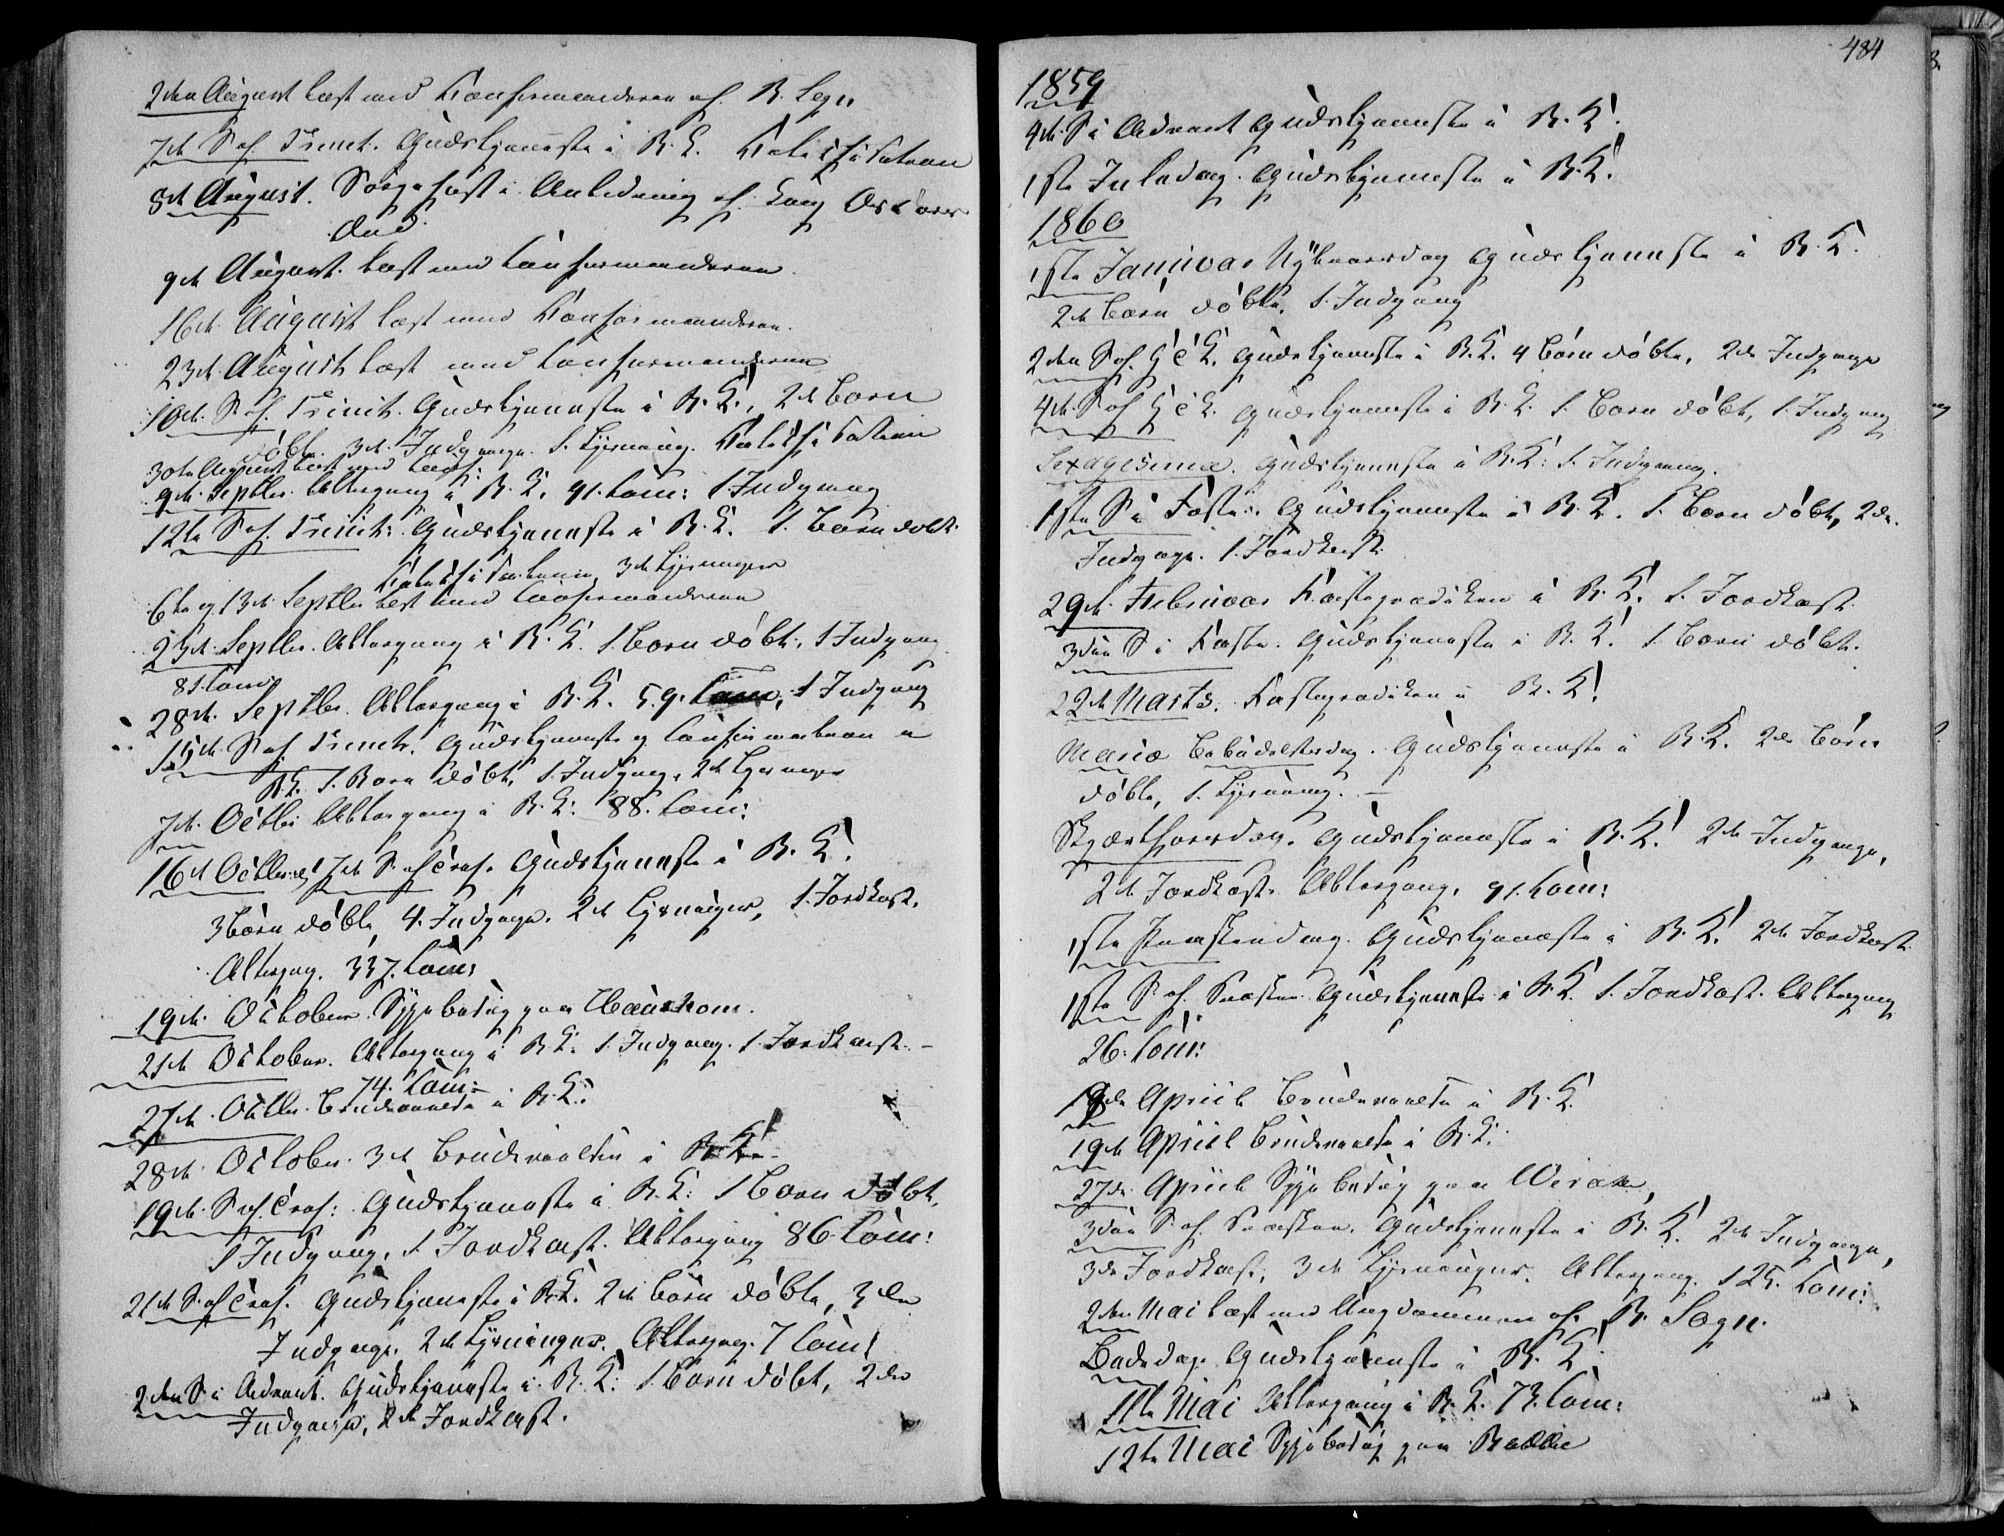 2den August læst med Confirmanderne af B. Sogn
7de S. ef. Trinit. Gudstjeneste i B. K. Katechisation
8de August. Sørgefest i Anledning af Kong Oscars
Død.
9de August. læst med Confirmanderne.
16de August læst med Confirmanderne.
23de August læst med Confirmanderne
10de S. ef. Trinit. Gudstjeneste i B. K., 2de Børn
døbte. 3de Indgange. 1. Lysning. Katechisation
30te August læst med Conf:
9de Septbr. Altergang i B. K. 91. Com: 1 Indgang
12te S. ef. Trinit: Gudstjeneste i B. K. 1. Barn døbt.
Katechisation, 3de Lysninger
6te og 13de Septbr læst med Confirmanderne
23de Septbr. Altergang i B. K. 1. Barn døbt, 1 Indgang.
81. Com:
28de Septbr. Altergang i B. K. 59. Com, 1 Indgang
15de S. ef. Trinit. Gudstjeneste og Confirmation i
B.K. 1. Barn døbt, 1. Indgang, 2de Lysninger
7de Octbr Altergang i B. K: 88. Com:
16de Octbr 17de S. ef Tref. Gudstjeneste i B. K.
3 Børn døbte, 4. Indgange. 2de Lysninger, 1. Jordkast.
Altergang. 337. Com:
19de October Sygebesøg paa
21de October. Altergang i B. K. 1. Indgang. 1. Jordkast. –
74. Com:
27de Octbr. Brudevielse i B. K:
28de October. 3de Brudevielser i B. K.
19de S. ef. Tref: Gudstjeneste i B. K: 1 Barn døbt,
1 Indgang. 1 Jordkast. Altergang 86 Com:
21de S. ef Tref. Gudstjeneste i B. K. 2de Børn døbte, 3de
Indgange, 2de Lysninger. Altergang. 7 Com:
2den S. i Advent. Gudstjeneste i B. K: 1. Barn døbt, 2de
Indgange, 2de Jordkast.
484
1859
4de S. i Advent Gudstjeneste i B. K.
1ste Juledag. Gudstjeneste i B. K.
1860
1ste Januar Nytaarsdag Gudstjeneste i B. K.
2de Børn døbte. 1. Indgang
2den S. ef. H 3 K. Gudstjeneste i B. K. 4 Børn døbte, 2de Indgange
4de S. ef H 3 K. Gudstjeneste i B. K. 1. Barn døbt, 1. Indgang
Sexagesima. Gudstjeneste i B. K: 1. Indgang.
1ste S. i Faste. Gudstjeneste i B. K. 1. Barn døbt, 2de
Indgange. 1. Jordkast
29de Februar Fasteprædiken i B. K. 1. Jordkast.
3die S. i Faste. Gudstjeneste i B. K. 1. Barn døbt.
22de Marts. Fasteprædiken i B. K.
Mariæ Bebudelsesdag. Gudstjeneste i B. K. 2de Børn
døbte, 1. Lysning. –
Skjærthorsdag. Gudstjeneste i B. K. 2de Indgange,
2de Jordkast. Altergang, 91. Com:
1ste Paaskedag. Gudstjeneste i B. K. 2de Jordkast.
1ste S. ef. Paaske Gudstjeneste i B. K. 1. Jordkast. Altergang
26. Com:
April Brudevielse i B. K.
19de April Brudevielse i B. K.
27de April Sygebesøg paa
3die S. ef. Paaske. Gudstjeneste i B. K. 2de Indgange,
3de Jordkast, 3de Lysninger. Altergang. 125. Com:
2den Mai læst med Ungdommen af B. Sogn.
Bededag. Gudstjeneste i B. K.
11te Mai Altergang i B. K. 73. Com:
12te Mai Sygebesøg paa